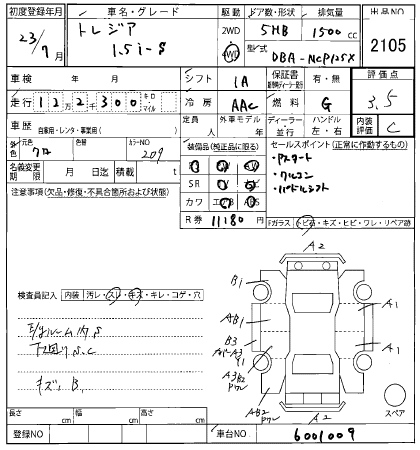 初度登録年月 車名・グレード 駆動 ドア数・形状 排気量 出品NO
23/7月 トレジア 1.5i-S 2WD 4WD 5HB 1500cc 2105
型式 DBA-NCP125X
車検 年 月 シフト IA 保証書 有・無 評価点
走行 122300 キロ・マイル 冷房 AAC 燃料 G 3.5
車歴 自家用・レンタ・事業用( ) 定員 人 外車モデル 年 ディーラー 並行 ハンドル 左・右 内装評価 C
元色 クロ 色替 カラーNO 209
装備品(純正品に限る) セールスポイント(正常に作動するもの)
・Pスタート
・クルコン
・パドルシフト
名義変更期限 月 日迄 積載 t
SR
カワ
R券 11180
注意事項(欠品・修復・不具合箇所および状態)
Fガラス トビ石・キズ・ヒビ・ワレ・リペア跡
A2
検査員記入 内装 汚レ・スレ・キズ・キレ・コゲ・穴
B1
A1
AB1
B3
A1
A3B2
AB2
A2
スペア
下回りS.C
キズ、B
長さ cm 幅 cm 高さ cm
登録NO 車台NO 6001009